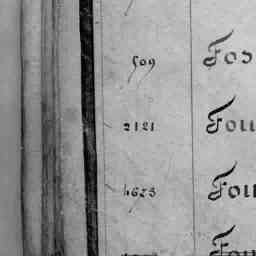 509 Fos
2121 Fou
4623 Fou
Fou